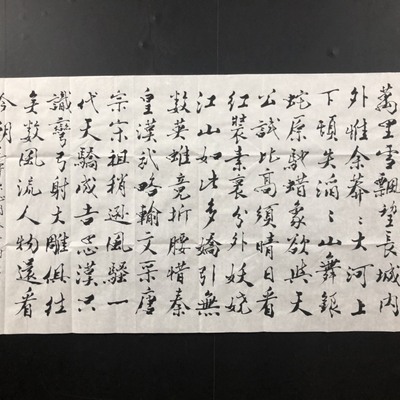 萬里雪飄望長城內
外惟余莽〻大河上
下頓失滔〻山舞銀
蛇原馳蜡象欲與天
公試比高須晴日看
紅裝素裹分外妖嬈
江山如此多嬌引無
數英雄竟折腰惜秦
皇漢武略輸文采唐
宗宋祖稍遜風騷一
代天驕成吉思漢只
識彎弓射大雕俱往
矣數風流人物還看
今朝